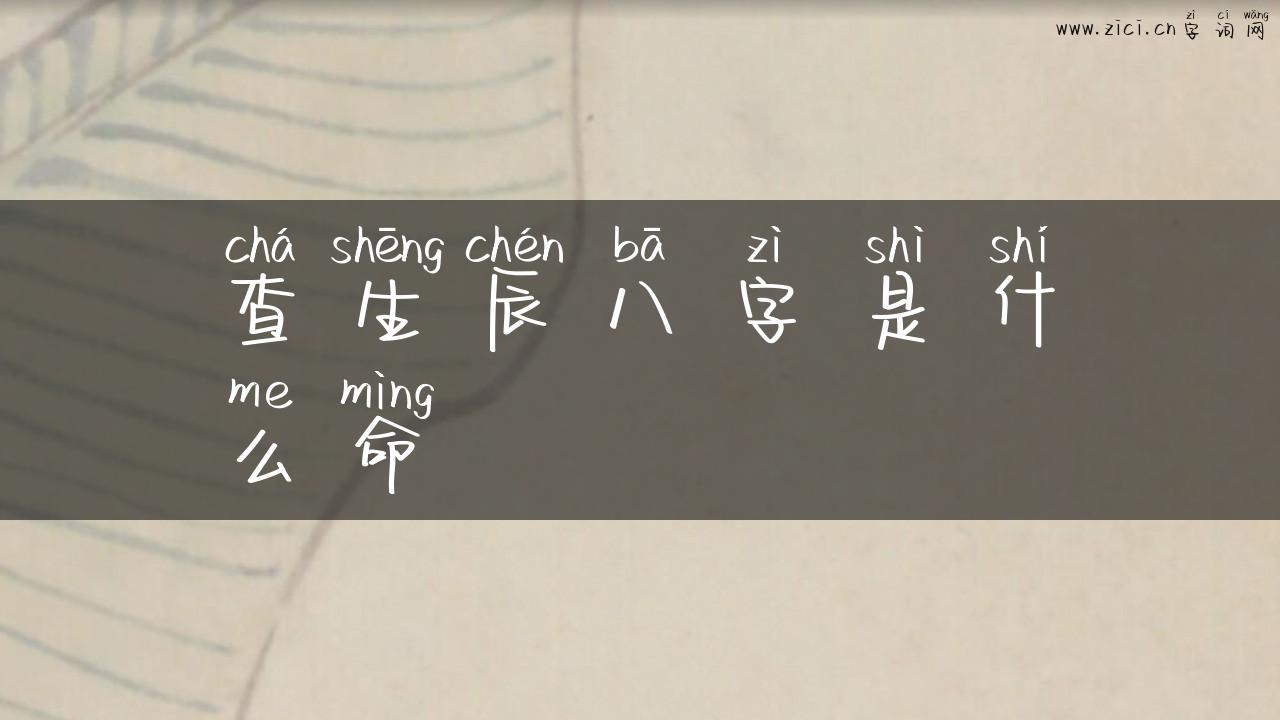 zì cí wǎng
www.zici.cn 字 词 网
chá shēng chén bā zì shì shí
查 生 辰 八 字 是 什
me mìng
么 命